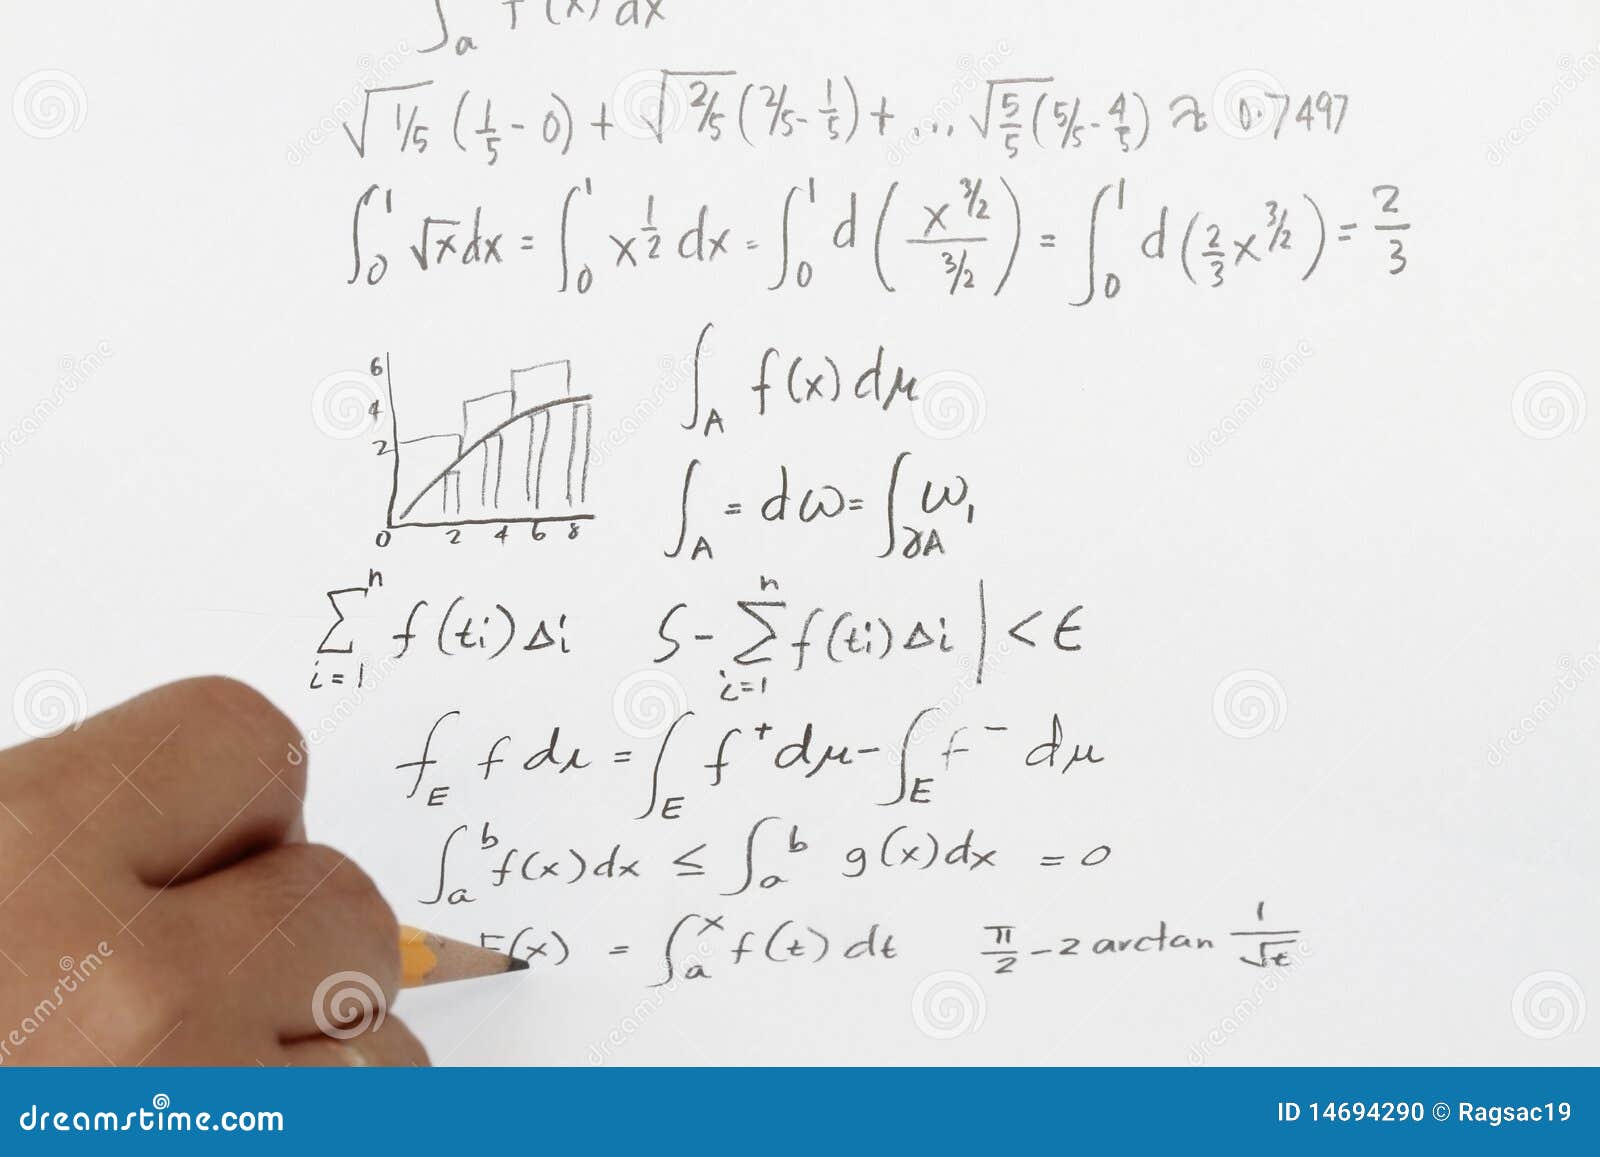 ∫ₐ f(x) dx
√1/5 (1/5 - 0) + √2/5 (2/5 - 1/5) + ... √5/5 (5/5 - 4/5) ≈ 0.7497
∫₀¹ √x dx = ∫₀¹ x^1/2 dx = ∫₀¹ d(x^3/2 / 3/2) = ∫₀¹ d(2/3 x^3/2) = 2/3
6
4
2
0 2 4 6 8
∫_A f(x) dμ
∫_A = dω = ∫_∂A ω,
Σ_{i=1}^n f(ti) Δi S - Σ_{i=1}^n f(ti) Δi | < ϵ
∫_E f dμ = ∫_E f⁺ dμ - ∫_E f⁻ dμ
∫ₐᵇ f(x) dx ≤ ∫ₐᵇ g(x) dx = 0
F(x) = ∫ₐˣ f(t) dt π/2 - 2 arctan 1/√t
dreamstime.com ID 14694290 © Ragsac19